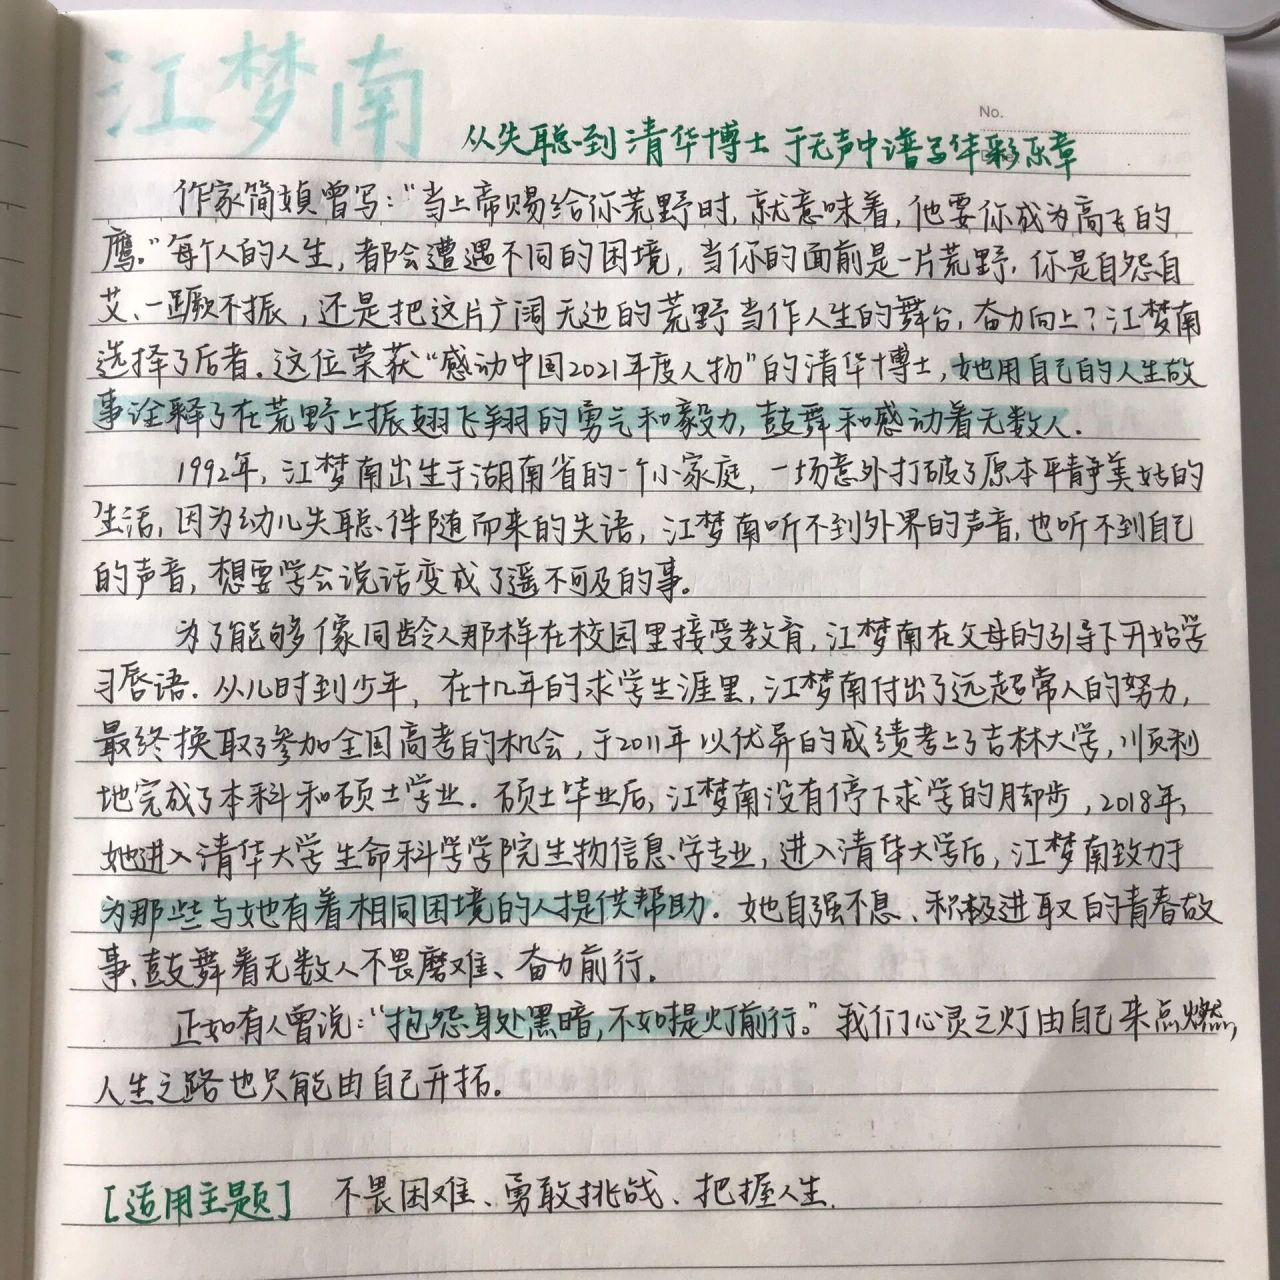 江梦南
No.
从失聪到清华博士 于无声中谱写华彩乐章
作家简媜曾写："当上帝赐给你荒野时,就意味着,他要你成为高飞的
鹰。"每个人的人生,都会遭遇不同的困境,当你的面前是一片荒野,你是自怨自
艾、一蹶不振,还是把这片广阔无边的荒野当作人生的舞台,奋力向上?江梦南
选择了后者。这位荣获"感动中国2021年度人物"的清华博士,她用自己的人生故
事诠释了在荒野上振翅飞翔的勇气和毅力,鼓舞和感动着无数人.
1992年,江梦南出生于湖南省的一个小家庭,一场意外打破了原本平静美好的
生活,因为幼儿失聪、伴随而来的失语,江梦南听不到外界的声音,也听不到自己
的声音,想要学会说话变成了遥不可及的事。
为了能够像同龄人那样在校园里接受教育,江梦南在父母的引导下开始学
习唇语.从儿时到少年,在十几年的求学生涯里,江梦南付出了远超常人的努力,
最终换取了参加全国高考的机会,于2011年以优异的成绩考上了吉林大学,顺利
地完成了本科和硕士学业.硕士毕业后,江梦南没有停下求学的脚步,2018年,
她进入清华大学生命科学学院生物信息学专业,进入清华大学后,江梦南致力于
为那些与她有着相同困境的人提供帮助.她自强不息、积极进取的青春故
事,鼓舞着无数人不畏磨难、奋力前行.
正如有人曾说:"抱怨身处黑暗,不如提灯前行。"我们心灵之灯由自己来点燃,
人生之路也只能由自己开拓。
[适用主题] 不畏困难、勇敢挑战、把握人生.